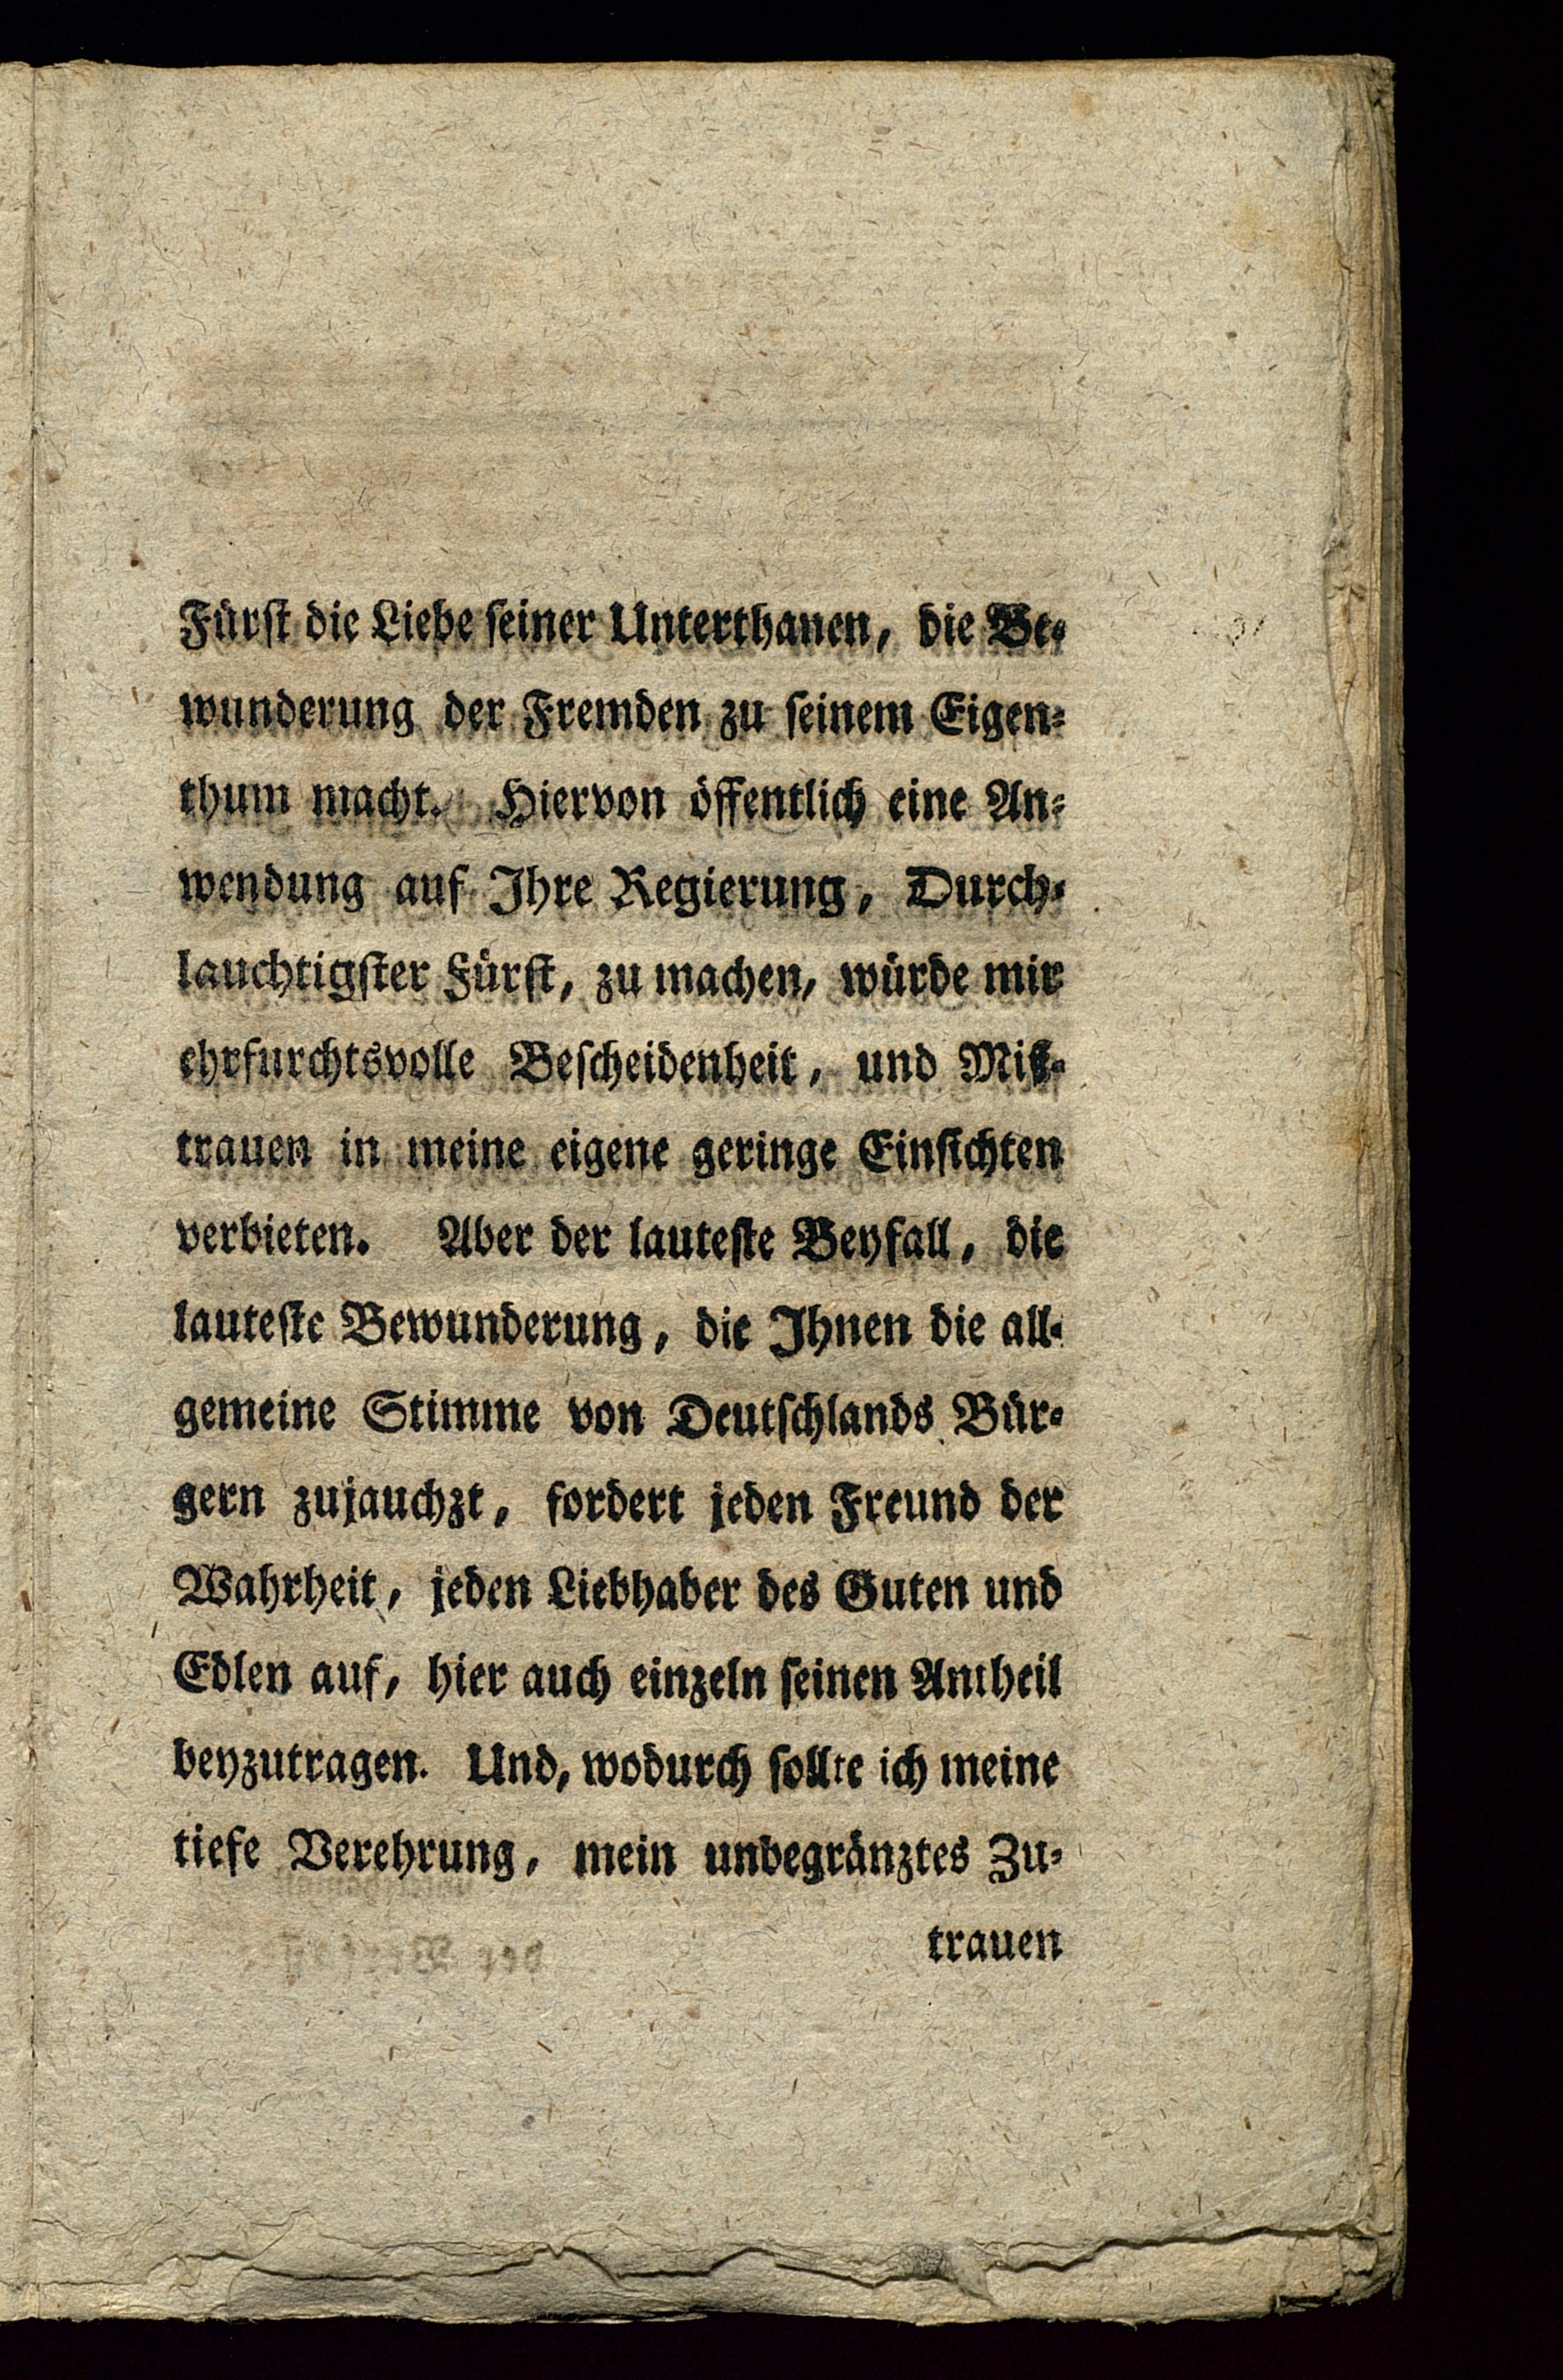 Fürſt die Liebe ſeiner Unterthanen, die Be-
wunderung der Fremden zu ſeinem Eigen-
thum macht. Hiervon öffentlich eine An-
wendung auf Ihre Regierung, Durch-
lauchtigſter Fürſt, zu machen, würde mir
ehrfurchtsvolle Beſcheidenheit, und Miß-
trauen in meine eigene geringe Einſichten
verbieten. Aber der lauteſte Beyfall, die
lauteſte Bewunderung, die Ihnen die all-
gemeine Stimme von Deutſchlands Bür-
gern zujauchzt, fordert jeden Freund der
Wahrheit, jeden Liebhaber des Guten und
Edlen auf, hier auch einzeln ſeinen Antheil
beyzutragen. Und, wodurch ſollte ich meine
tiefe Verehrung, mein unbegränztes Zu-
trauen